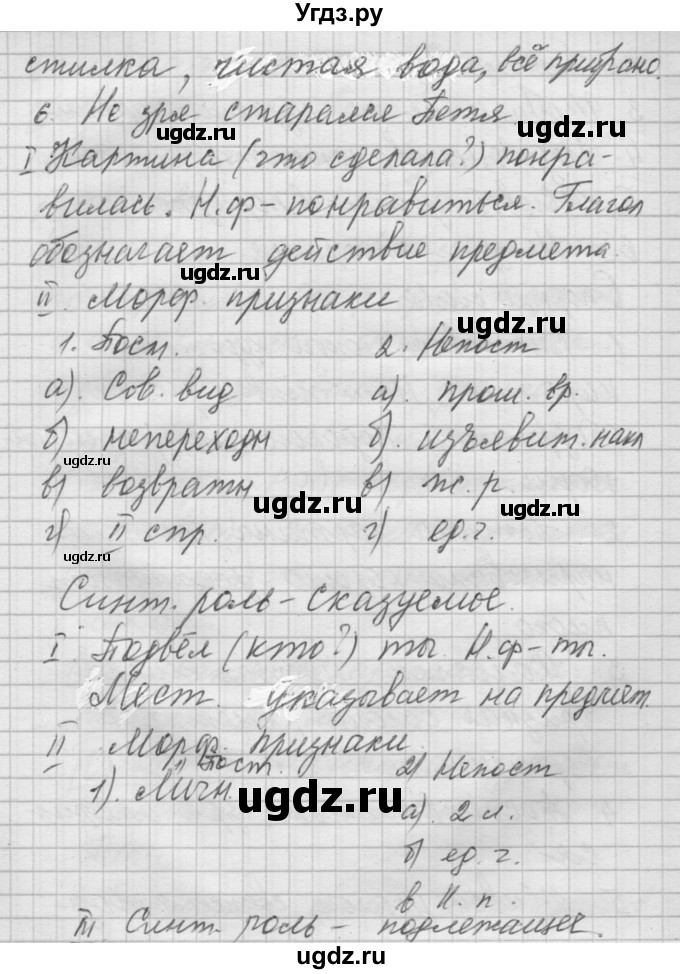 Угдз.ру
стилка, чистая вода, всё прибрано.
6. Не зря старался Петя
I Картина (что сделала?) понра-
вилась. Н.ф - понравиться. Глагол
обозначает действие предмета.
II. Морф. признаки
1. Пост. 2. Непост
а). Сов. вид а). прош. вр.
б) непереходн б). изъявит. накл
в) возвратн в) ж. р.
г) II спр. г) ед. ч.
Синт. роль - сказуемое.
I. Подвёл (кто?) ты. Н.ф - ты.
Мест. указывает на предмет.
II Морф. признаки.
1) Пост. 2) Непост
1). Личн. а). 2 л.
б) ед. ч.
в И. п.
III Синт. роль - подлежащее.
ugdz.ru
ugdz.ru
ugdz.ru
ugdz.ru
ugdz.ru
ugdz.ru
ugdz.ru
ugdz.ru
ugdz.ru
ugdz.ru
ugdz.ru
ugdz.ru
ugdz.ru
ugdz.ru